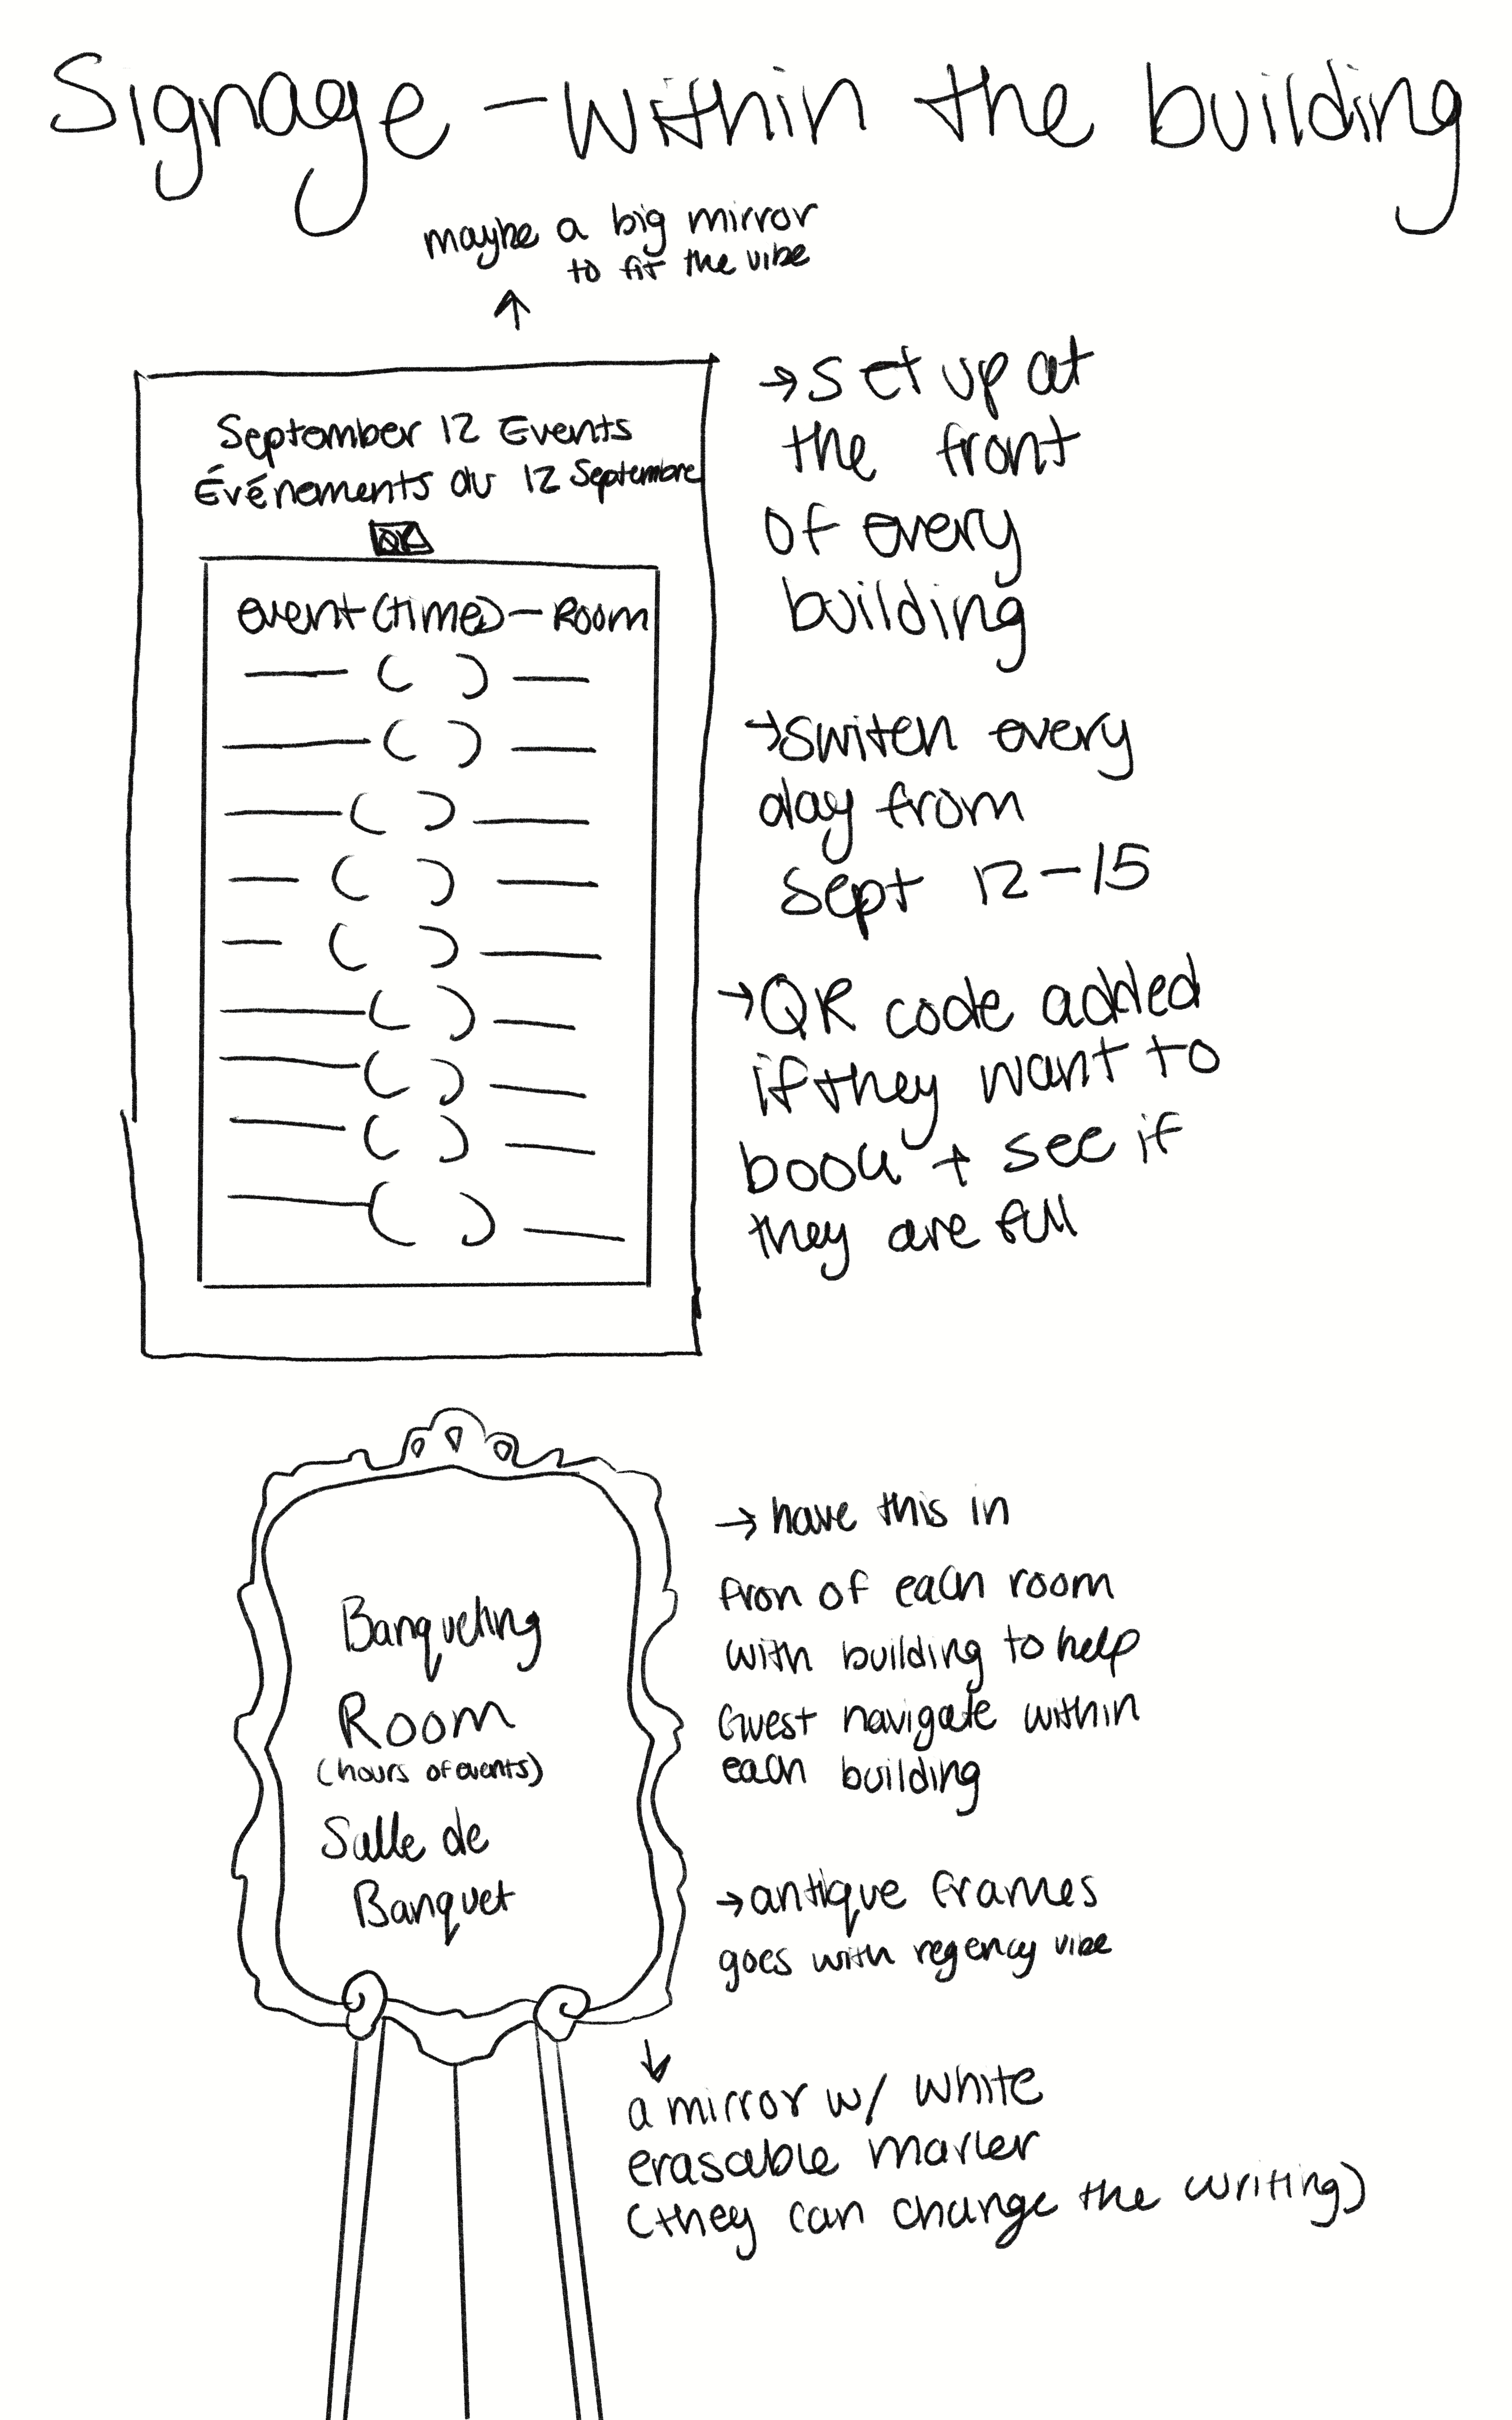 Signage - Within the building
maybe a big mirror
to fit the vibe
↑
September 12 Events
Événements du 12 Septembre
QR
event (time) - Room
( )
( )
( )
( )
( )
( )
( )
( )
( )
→ Set up at
the front
of every
building
→ Switch every
day from
Sept 12-15
→ QR code added
if they want to
book + see if
they are full
Banqueting
Room
(hours of events)
Salle de
Banquet
→ have this in
fron of each room
with building to help
Guest navigate within
each building
→ antique frames
goes with regency vibe
↓
a mirror w/ white
erasable marker
(they can change the writing)